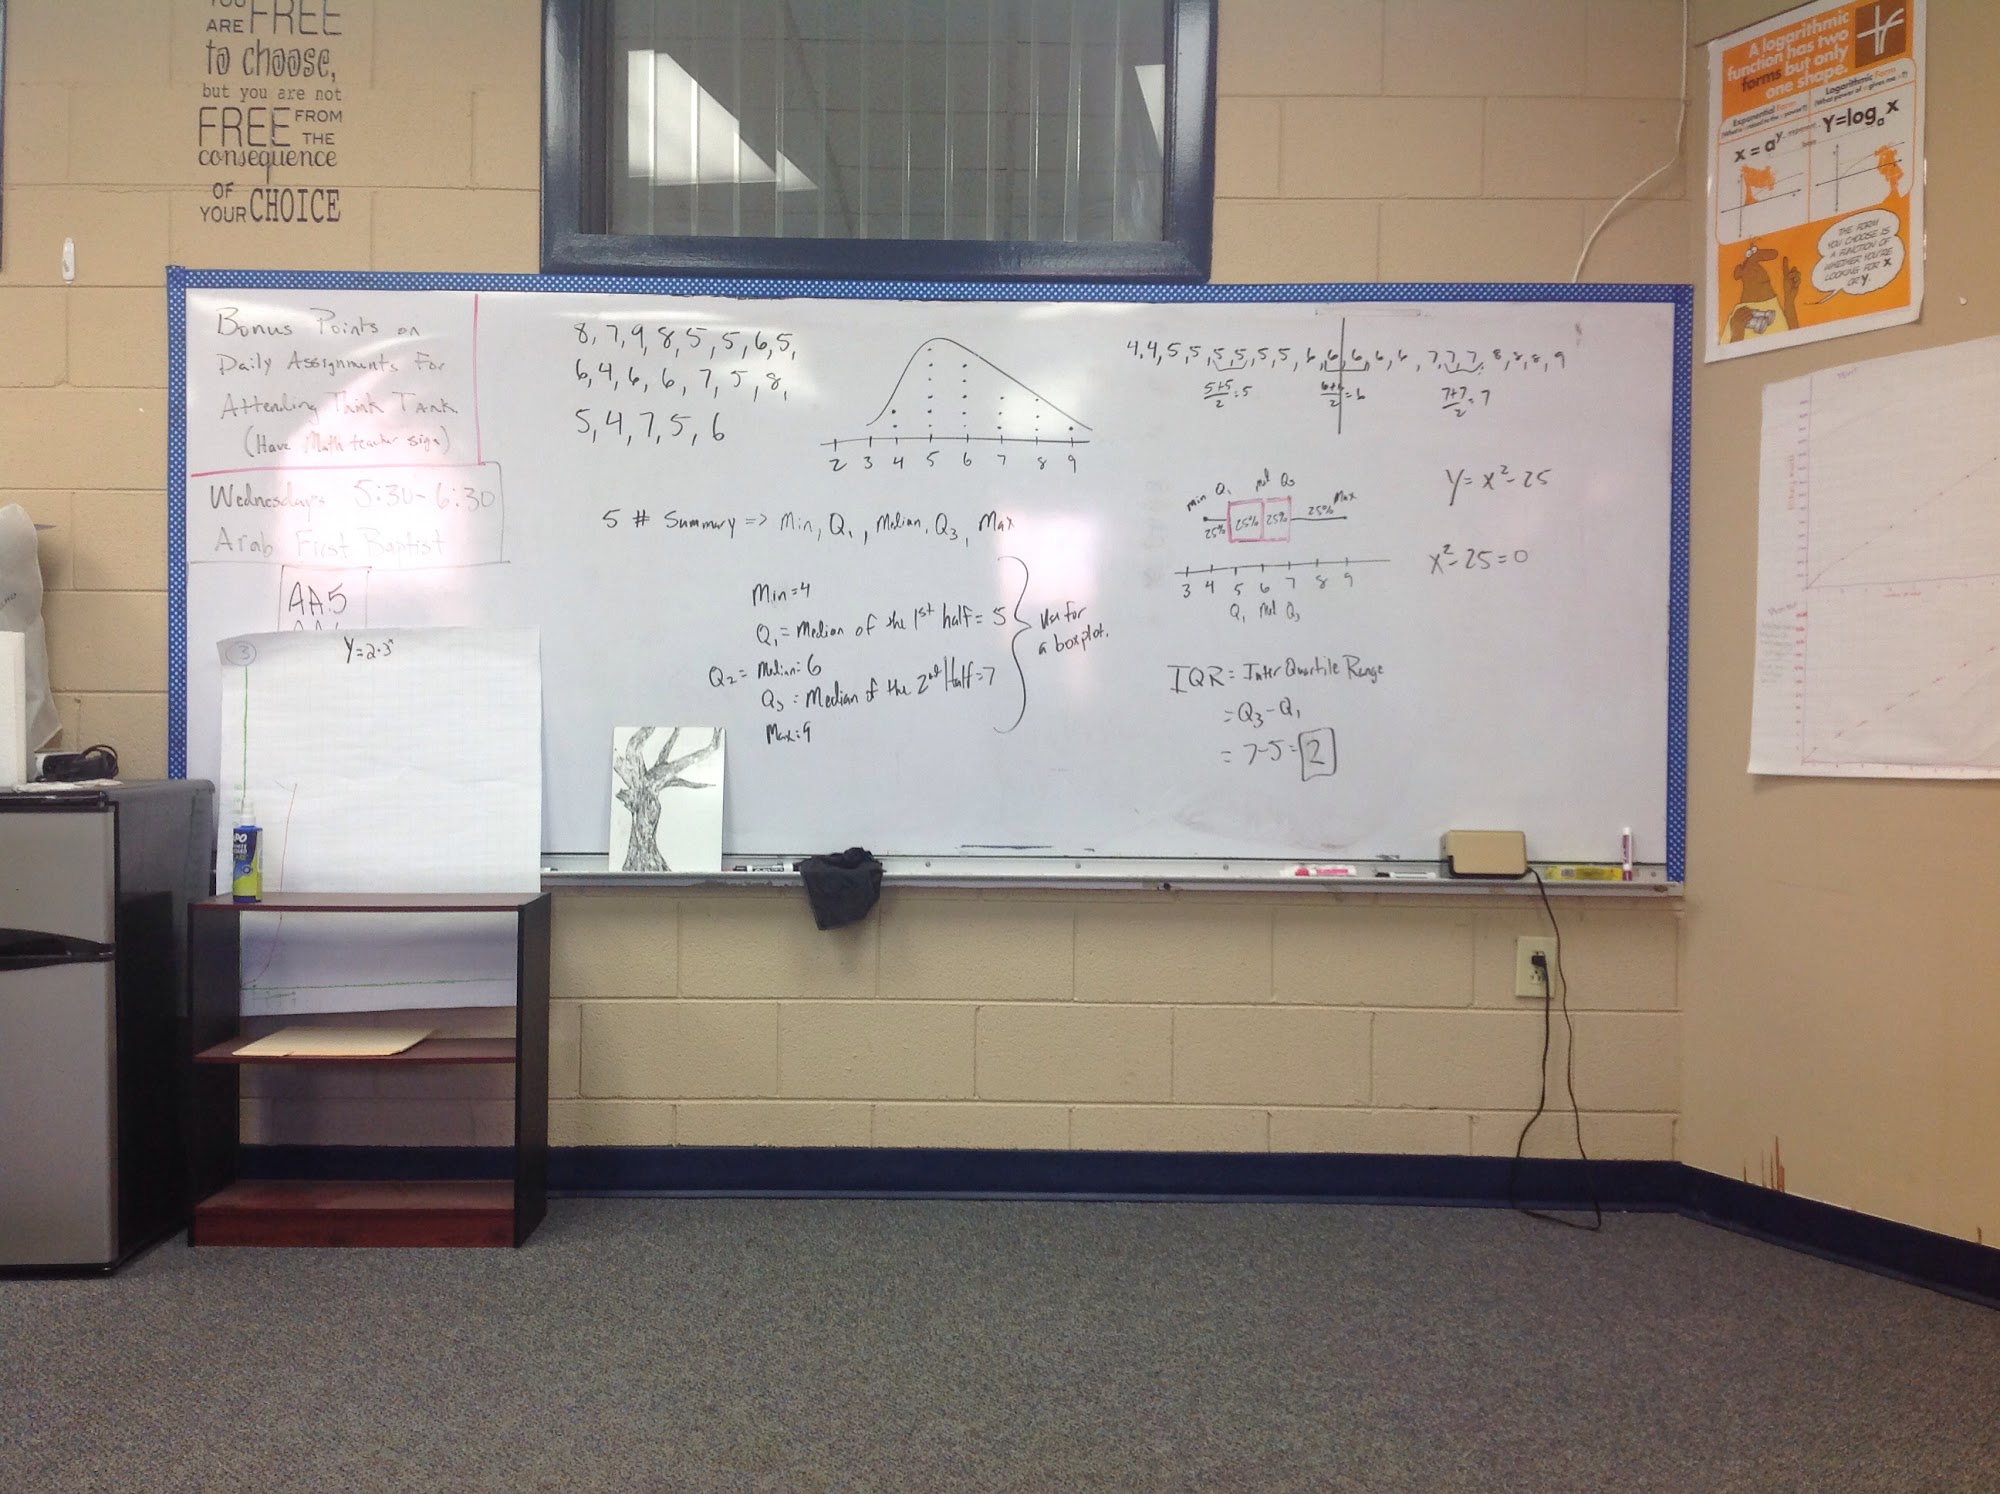 YOU
ARE FREE
to choose,
but you are not
FREE FROM
THE
consequence
OF
YOUR CHOICE
Bonus Points on
Daily Assignments For
Attending Think Tank
(Have Math teacher sign)
Wednesdays 5:30-6:30
Arab First Baptist
AA5
3
Y=2·3ˣ
8,7,9,8,5,5,6,5,
6,4,6,6,7,5,8,
5,4,7,5,6
2 3 4 5 6 7 8 9
5 # Summary => Min, Q₁, Median, Q₃, Max
Min=4
Q₁=Median of the 1st half=5
Q₂= Median=6
Q₃=Median of the 2nd Half=7
Max=9
Use for
a boxplot.
4,4,5,5,5,5,5,5,6,6,6,6,6,7,7,7,8,8,8,9
5+5/2=5
6+6/2=6
7+7/2=7
min Q₁ Med Q₃ Max
25% 25% 25% 25%
3 4 5 6 7 8 9
Q₁ Med Q₃
Y=x²-25
x²-25=0
IQR= InterQuartile Range
=Q₃-Q₁
=7-5=2
A logarithmic
function has two
forms but only
one shape.
Exponential Form
Logarithmic Form
x=aʸ
Y=logₐx
THE FORM
YOU CHOOSE IS
A FUNCTION OF
WHETHER YOU'RE
LOOKING FOR X
OR Y.